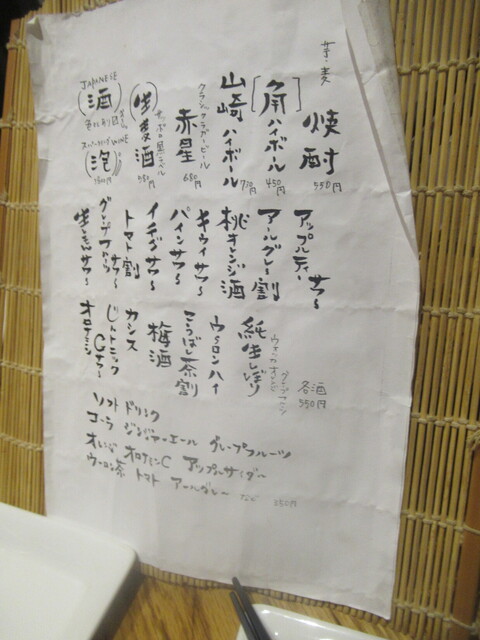 芋・麦
焼酎
550円
[角]ハイボール
450円
山崎ハイボール
770円
クラシックラガービール
赤星
680円
(生)麦酒
サッポロ黒ラベル
580円
JAPANESE
(酒)
(泡)
アップルティーサワー
アールグレー割
桃オレンジ酒
キウイサワー
パインサワー
イチゴサワー
トマト割
サワー
グレープフルーツ
生レモンサワー
各酒
550円
純生しぼり
ウーロンハイ
こうばし茶割
梅酒
カシス
ジントニック
Cサワー
オロナミン
ソフトドリンク
コーラ ジンジャーエール グレープフルーツ
オレンジ オロナミンC アップルサイダー
ウーロン茶 トマト アールグレー など 250円